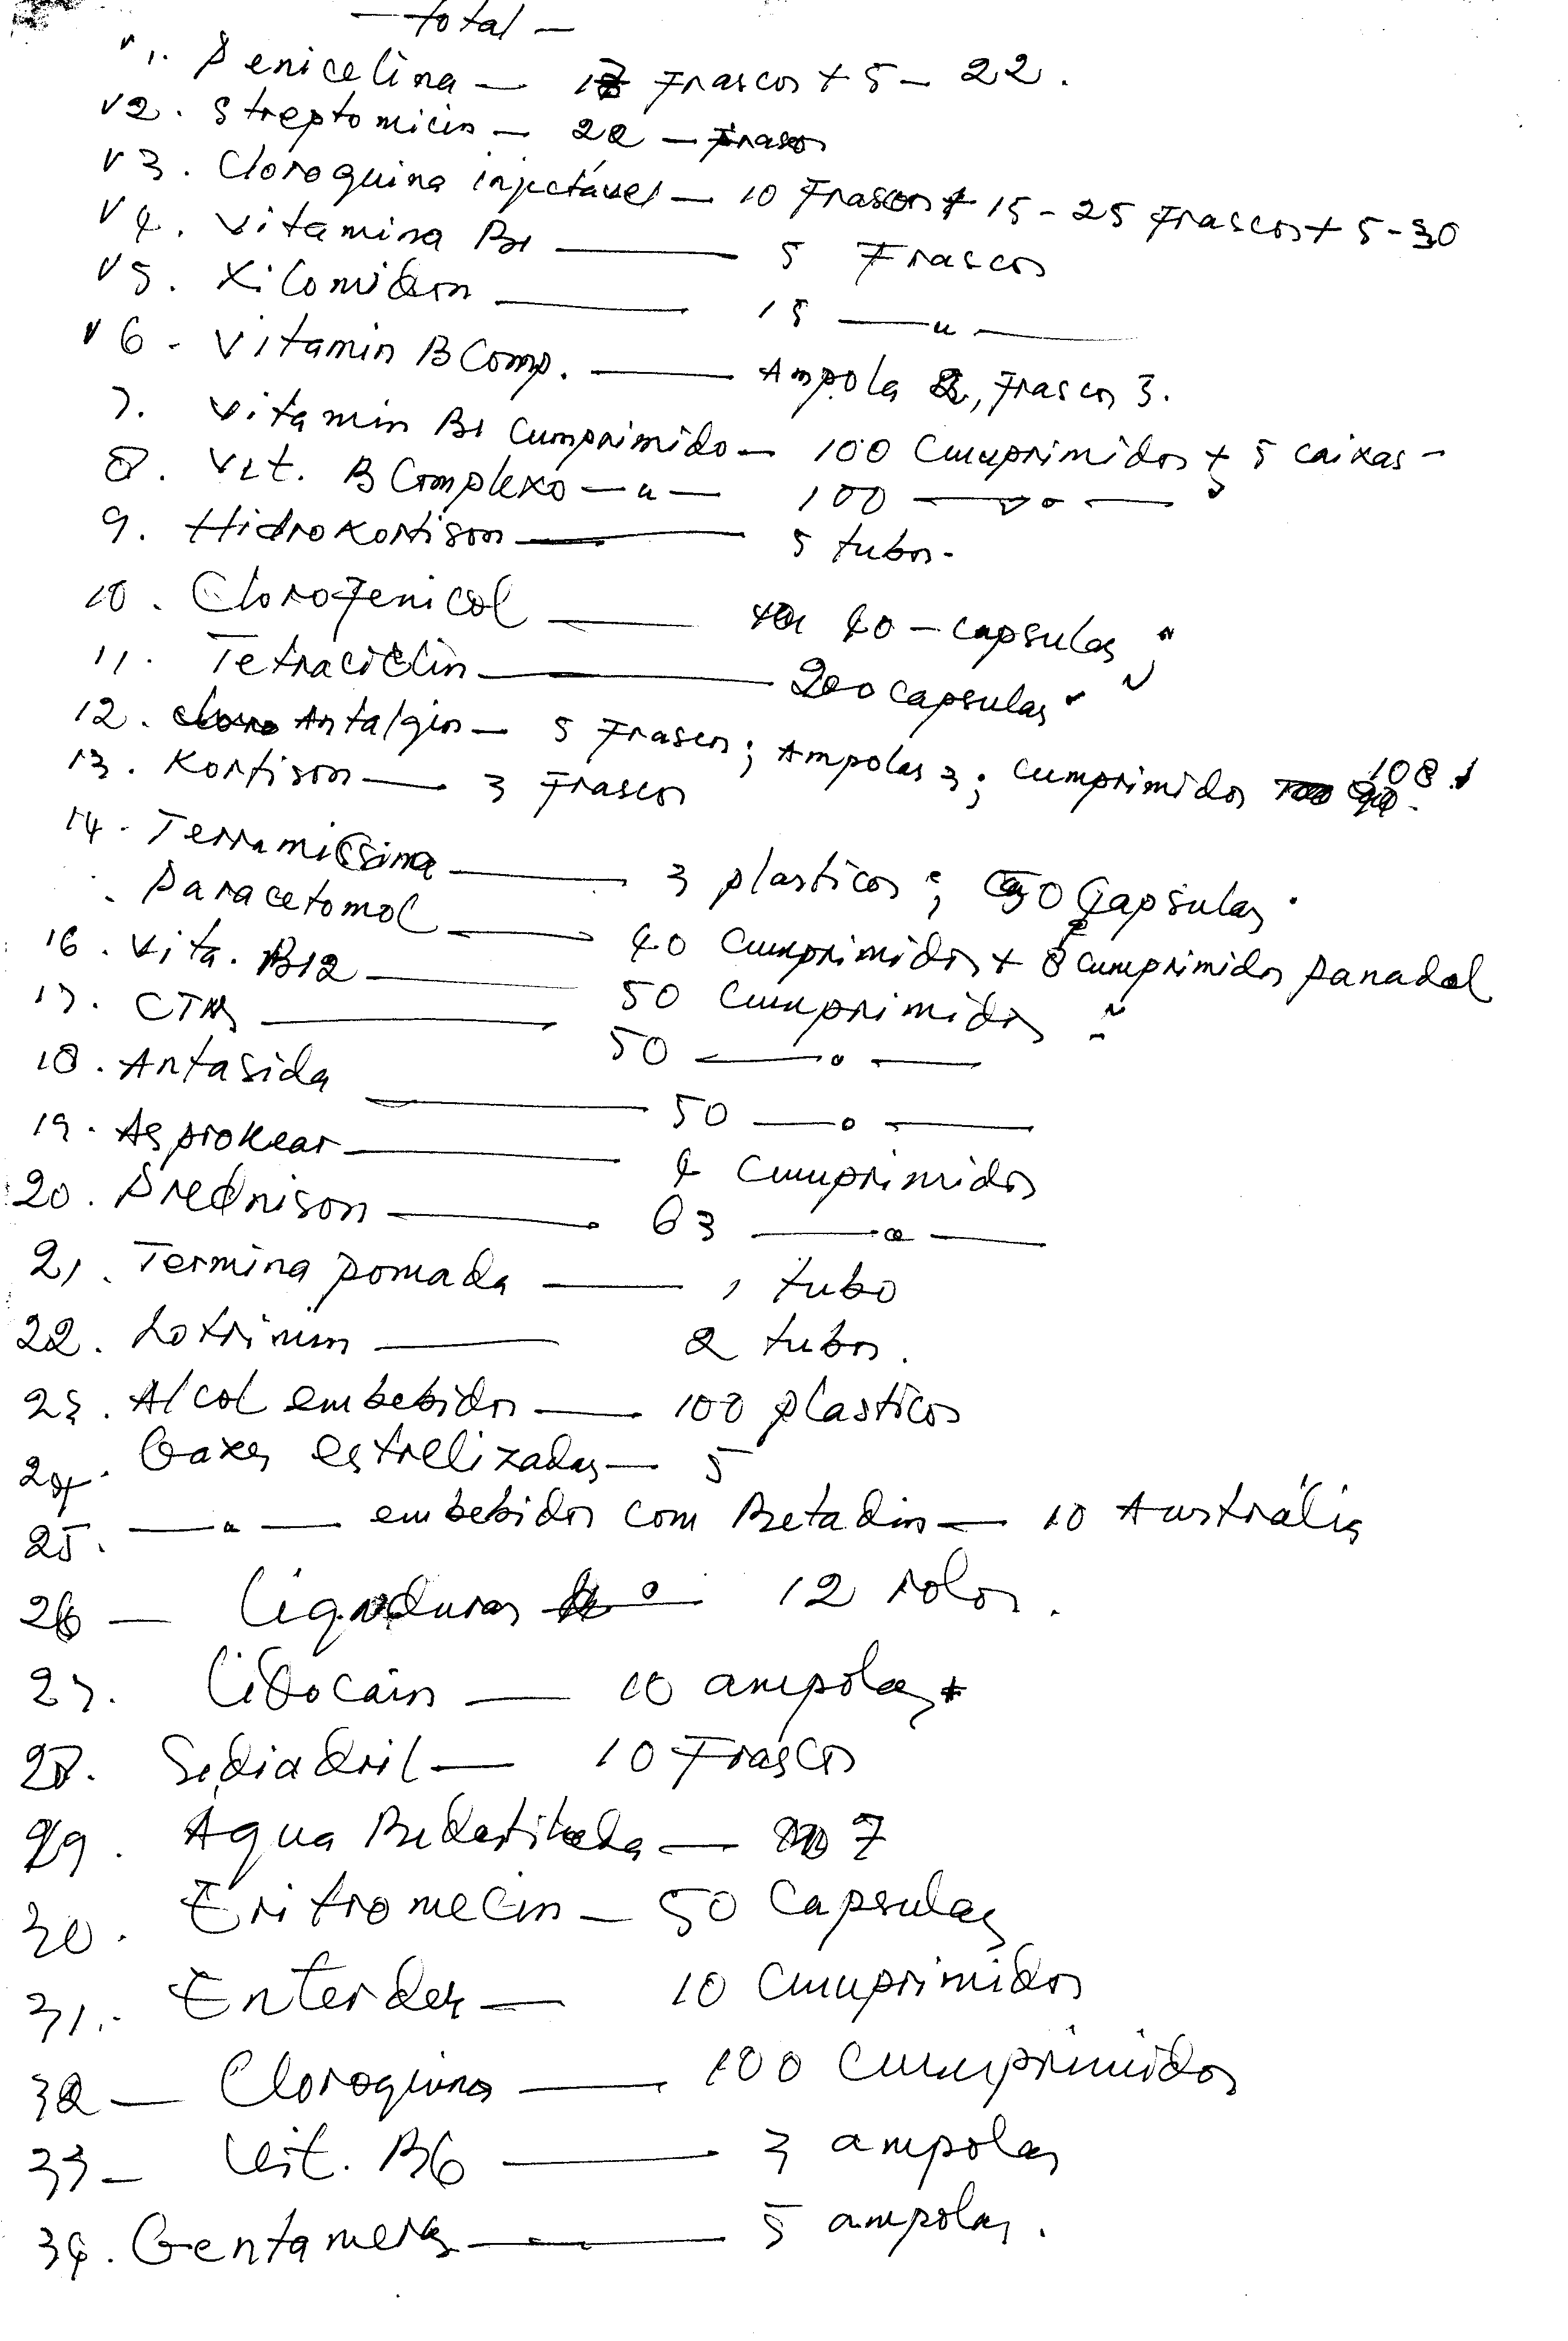 — total —
v 1. Penicelina — 17 Frascos + 5 — 22.
v 2. Streptomicin — 22 — Frasos
v 3. Cloroquina injectável — 10 Frascos + 15 - 25 Frascos + 5 - 30
v 4. Vitamina B1 — 5 Frascos
v 5. Xilomidon — 15 — " —
v 6. Vitamin B Comp. — Ampola 2, Frascos 3.
7. Vitamin B1 Cumprimido — 100 Cumprimidos + 5 caixas -
8. Vit. B Complexo — " — 100 — " —
9. Hidrokortison — 5 tubos.
10. Clorofenicol — 40 — capsulas
11. Tetraciclin — 200 capsulas
12. Antalgin — 5 Frascos; Ampolas 3; Cumprimidos 108
13. Kortison — 3 Frascos
14. Terramicsina — 3 plasticos; 50 Capsulas.
. Paracetomol — 40 Cumprimidos + 8 cumprimidos panadol
16. Vita. B12 — 50 Cumprimidos
17. CTM — 50 — " —
18. Antasida — 50 — " —
19. Asprokear — 4 Cumprimidos
20. Prednison — 63 — " —
21. Termina pomada — 1 tubo
22. Lotrimin — 2 tubos.
23. Alcol embebidos — 100 plasticos
24. Gazes estrelizadas — 5
25. — " — embebidos com Betadin — 10 Austrális
26 — Ligaduras — 12 rolos.
27. Lidocain — 10 ampolas
28. Sediadril — 10 Frascos
29. Agua Bidestilada — 7
30. Eritromecin — 50 Capsulas
31. — 10 Cumprimidos
32 — Cloroquina — 100 Cumprimidos
33 — Vit. B6 — 3 ampolas
34. — 5 ampolas.